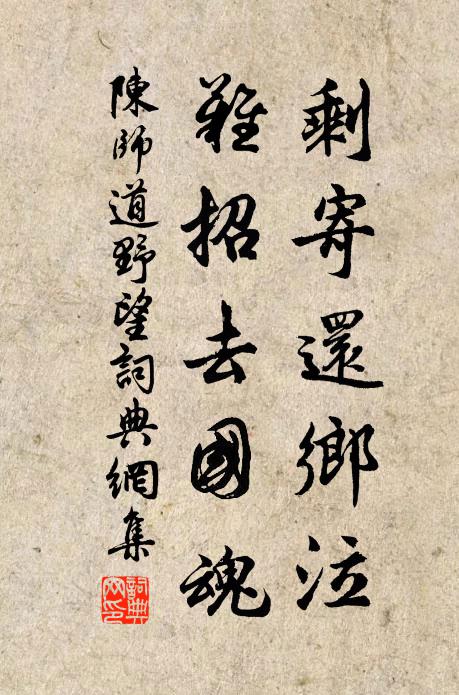 剩寄還鄉泣
難招去國魂
陳師道野望詞典網集
詞典網印